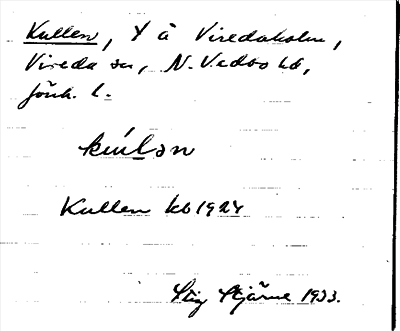 Kullen, t å Viredaholm,
Vireda sn, N. Vedbo hd,
Jönk. l.
kúlən
Kullen kb 1924
Stig Stjärne 1933.